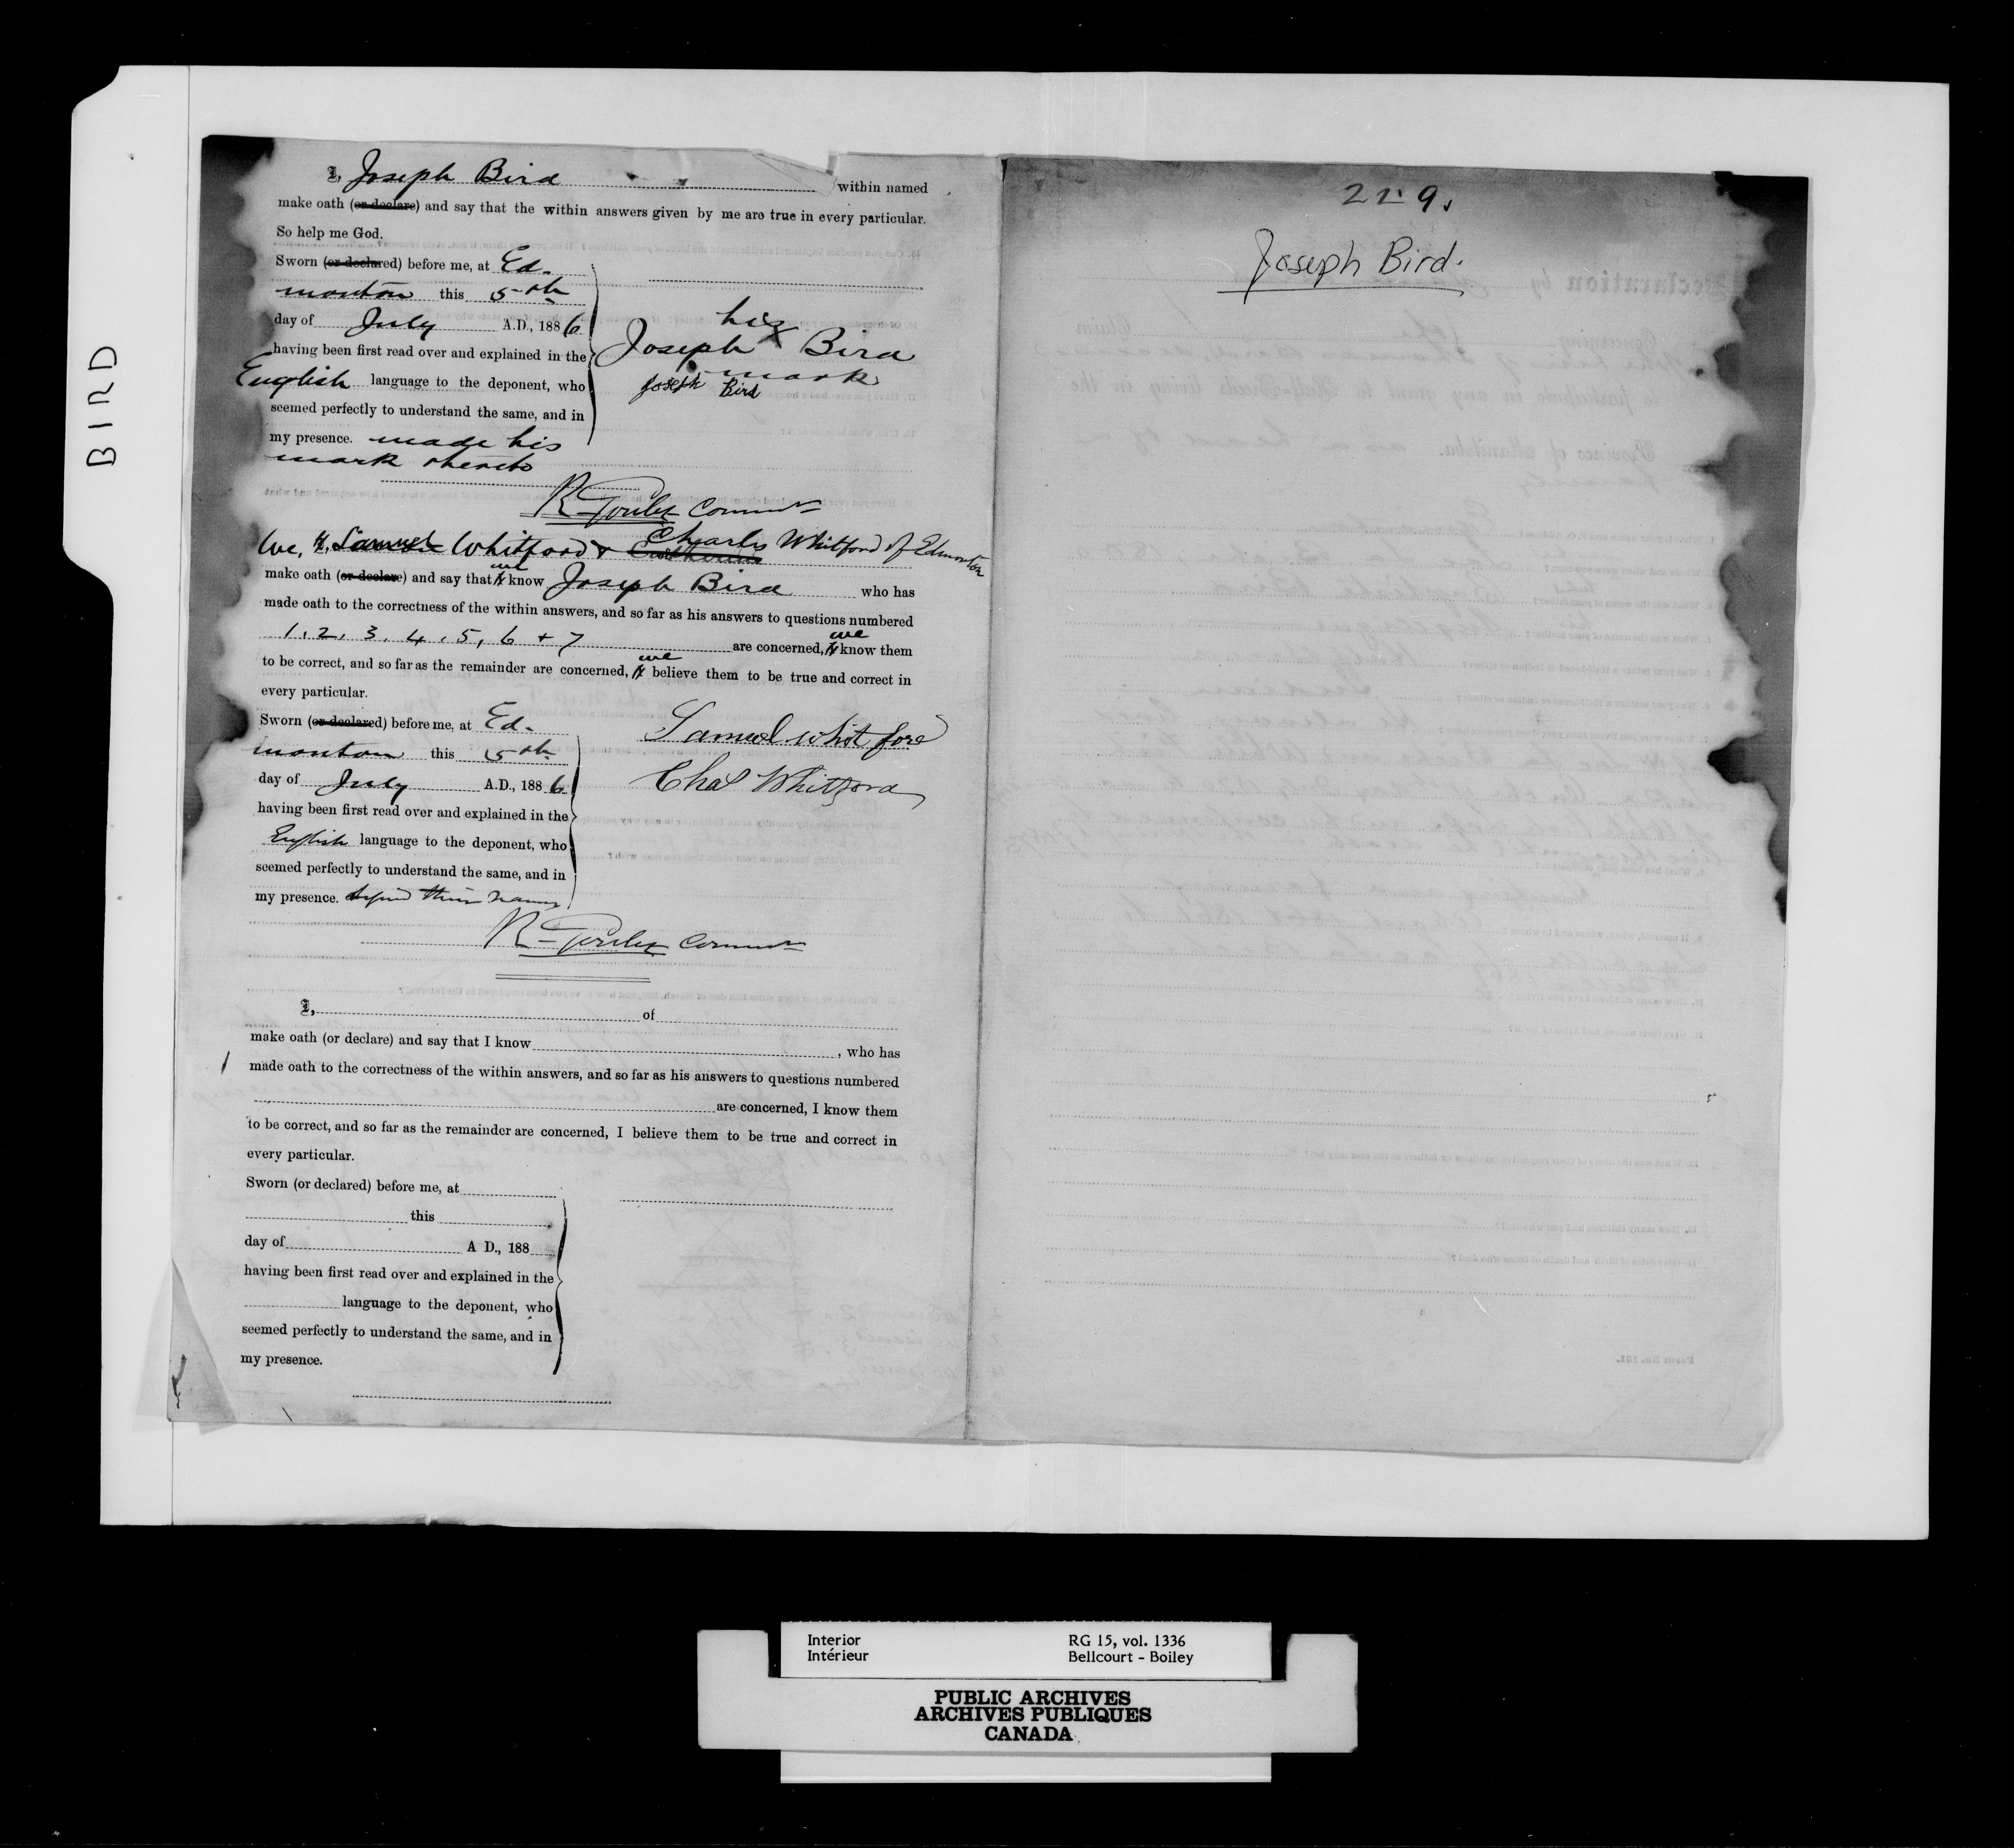 BIRD
I, Joseph Bird within named
make oath (or declare) and say that the within answers given by me are true in every particular.
So help me God.
Sworn (or declared) before me, at Ed-
monton this 5th
day of July A.D., 1886
having been first read over and explained in the
English language to the deponent, who
seemed perfectly to understand the same, and in
my presence. made his
mark thereto
his
Joseph X Bird
mark
Joseph Bird
R Goulet Commr
We, I, Samuel Whitford & Catherine Charles Whitford of Edmonton
make oath (or declare) and say that I we know Joseph Bird who has
made oath to the correctness of the within answers, and so far as his answers to questions numbered
1, 2, 3, 4, 5, 6 + 7 are concerned, I we know them
to be correct, and so far as the remainder are concerned, I we believe them to be true and correct in
every particular.
Sworn (or declared) before me, at Ed-
monton this 5th
day of July A.D., 1886
having been first read over and explained in the
English language to the deponent, who
seemed perfectly to understand the same, and in
my presence. signed their names
Samuel whitford
Chas Whitford
R Goulet Commr
I, of
make oath (or declare) and say that I know , who has
made oath to the correctness of the within answers, and so far as his answers to questions numbered
are concerned, I know them
to be correct, and so far as the remainder are concerned, I believe them to be true and correct in
every particular.
Sworn (or declared) before me, at
this
day of A D., 188
having been first read over and explained in the
language to the deponent, who
seemed perfectly to understand the same, and in
my presence.
229.
Joseph Bird.
Interior RG 15, vol. 1336
Intérieur Bellcourt - Boiley
PUBLIC ARCHIVES
ARCHIVES PUBLIQUES
CANADA